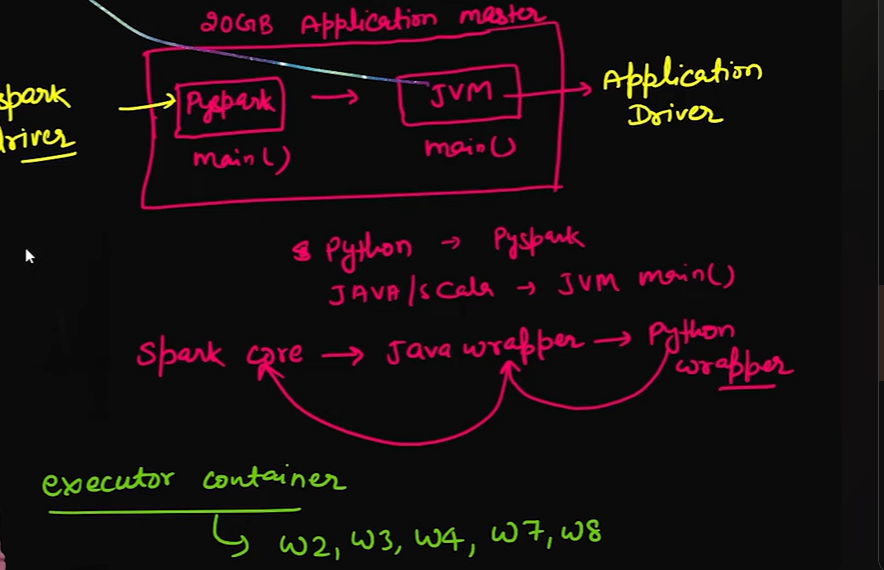 20GB Application master
spark
driver
Pyspark
JVM
Application
Driver
main()
main()
Python → Pyspark
JAVA/Scala → JVM main()
Spark core → Java wrapper → Python
wrapper
executor container
W2, W3, W4, W7, W8